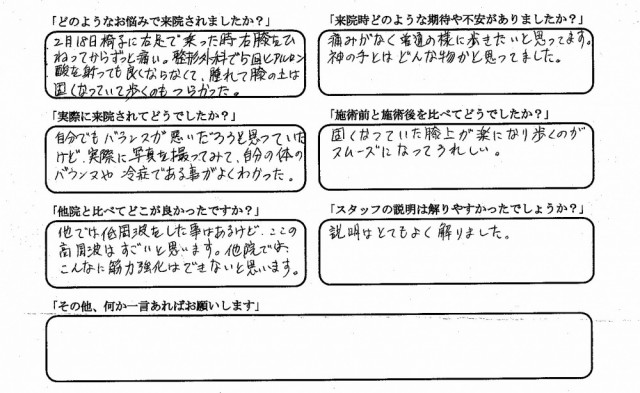 「どのようなお悩みで来院されましたか？」
2月18日椅子に右足で乗った時右膝をひ
ねってからずっと痛い。整形外科で5回ヒアルロン
酸を射っても良くならなくて、腫れて膝の上は
固くなっていて歩くのもつらかった。
「来院時どのような期待や不安がありましたか？」
痛みがなく普通の様に歩きたいと思ってます。
神の手とはどんな物かと思ってました。
「実際に来院されてどうでしたか？」
自分でもバランスが悪いだろうと思っていた
けど、実際に写真を撮ってみて、自分の体の
バランスや冷症である事がよくわかった。
「施術前と施術後を比べてどうでしたか？」
固くなっていた膝上が楽になり歩くのが
スムーズになってうれしい。
「他院と比べてどこが良かったですか？」
他では低周波をした事はあるけど、ここの
高周波はすごいと思います。他院では、
こんなに筋力強化はできないと思います。
「スタッフの説明は解りやすかったでしょうか？」
説明はとてもよく解りました。
「その他、何か一言あればお願いします」